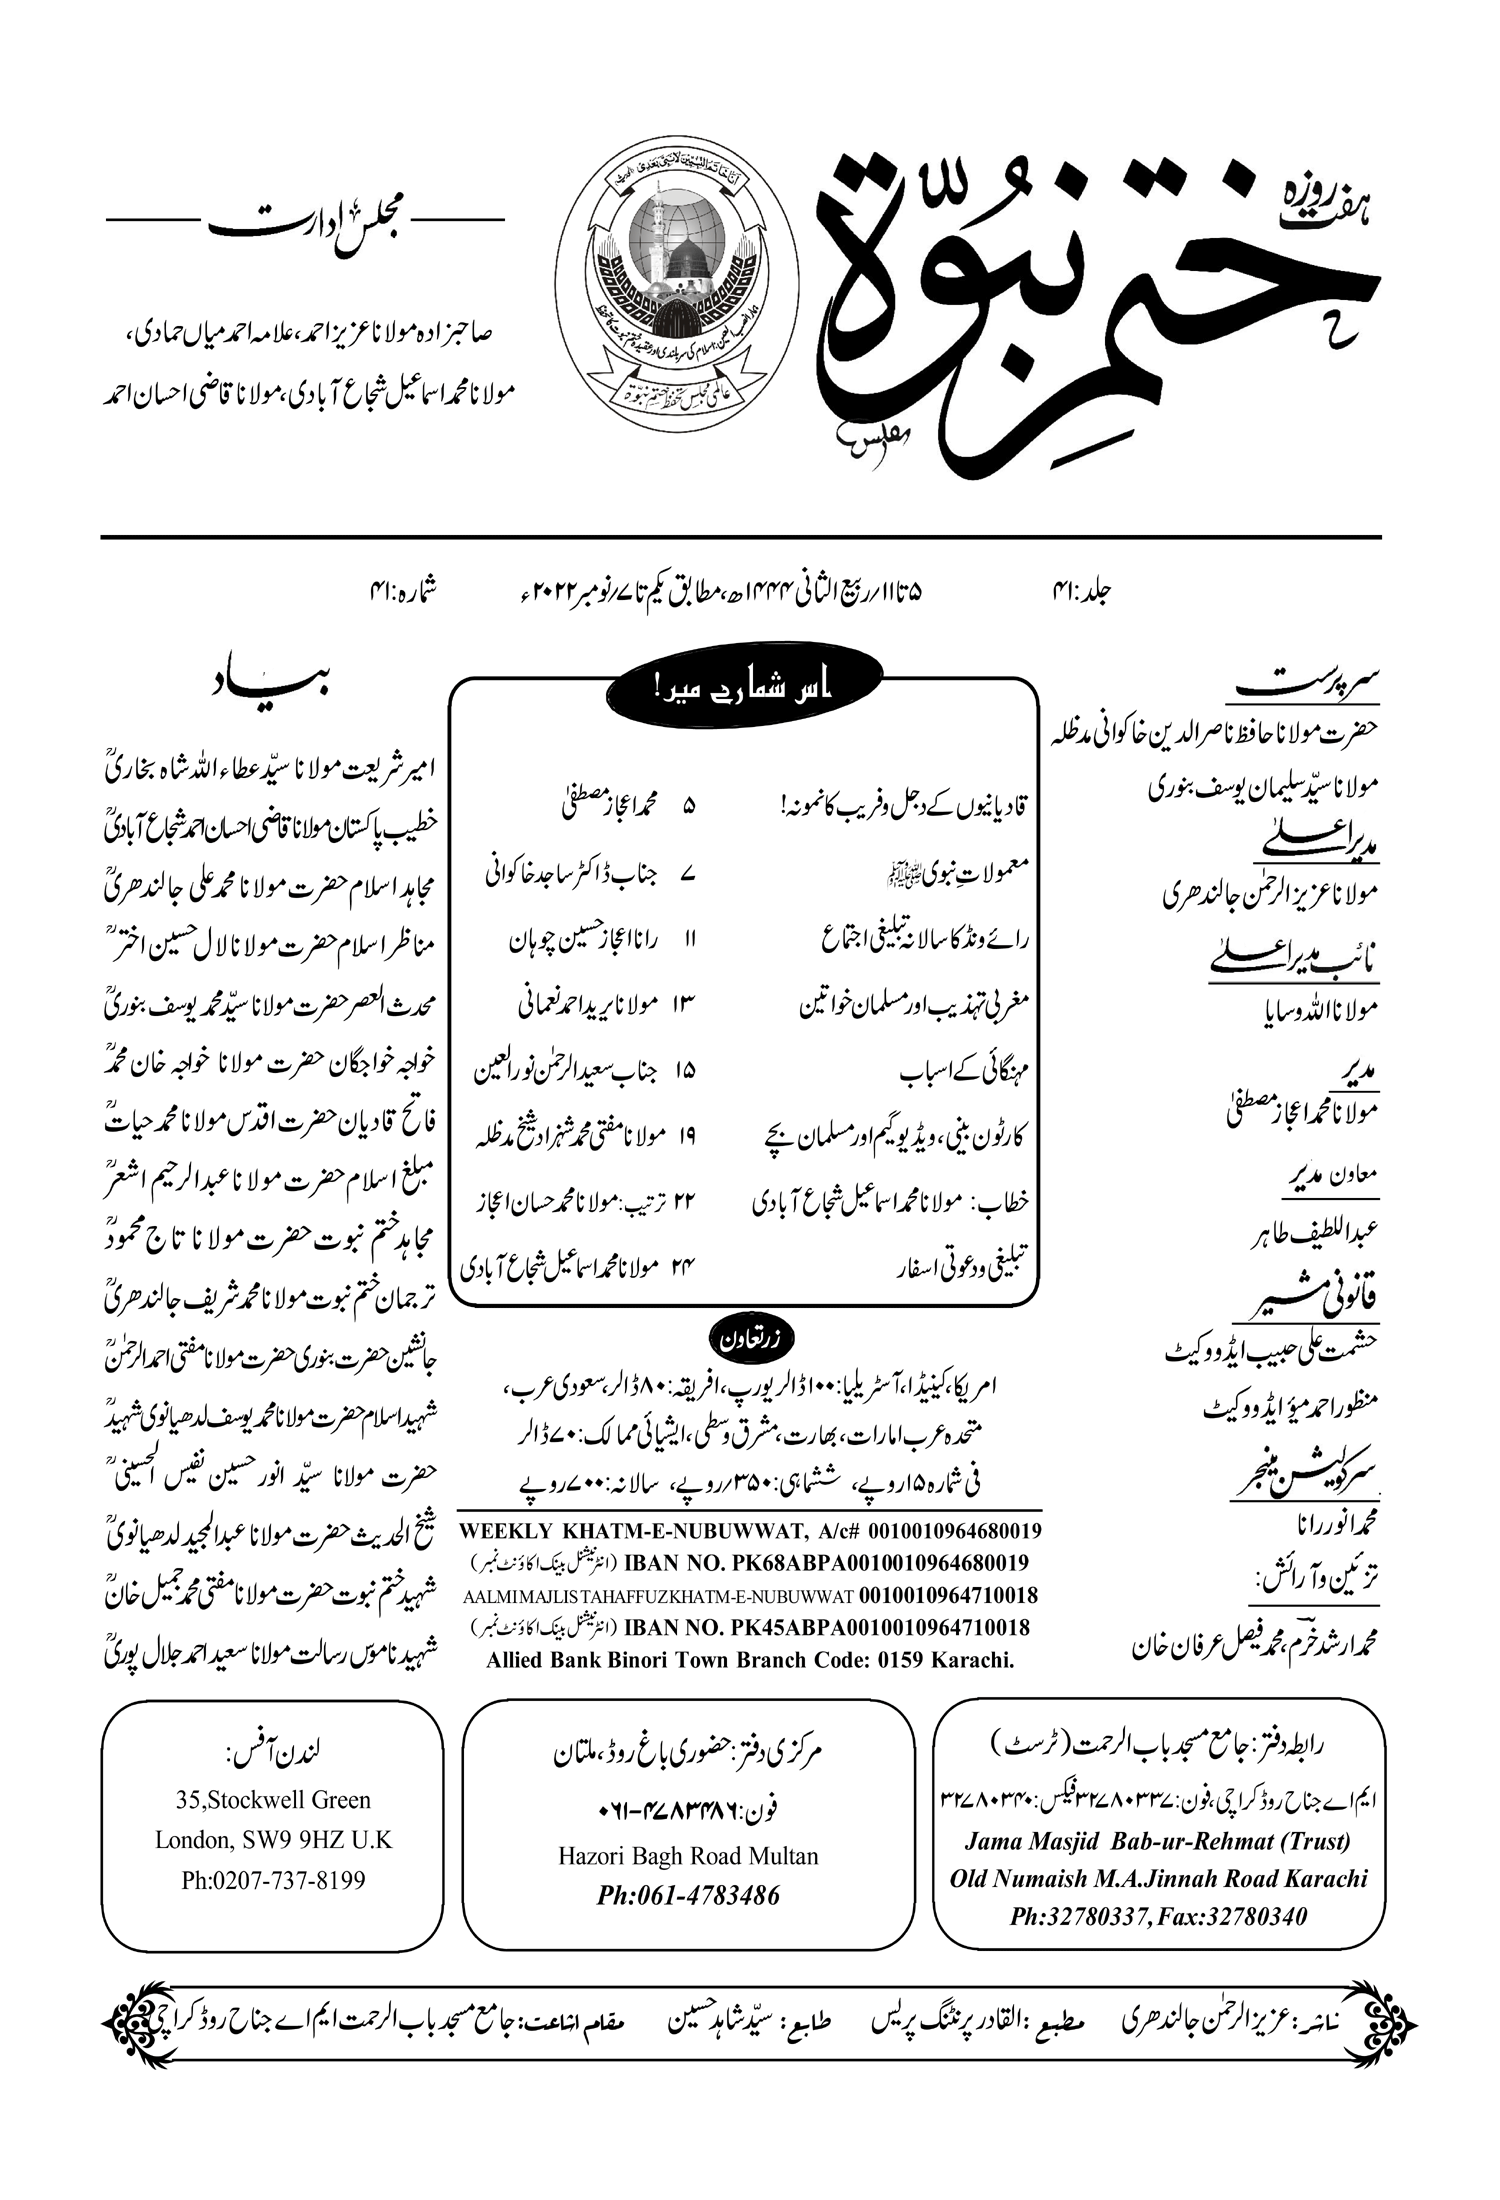 ہفت روزہ
ختم نبوّۃ
مجلس ادارت
صاحبزادہ مولانا عزیز احمد، علامہ احمد میاں حمادی،
مولانا محمد اسماعیل شجاع آبادی، مولانا قاضی احسان احمد
اَنَا خَاتَمُ النَّبِیّیْنَ لَا نَبِیَّ بَعْدِیْ
عالمی مجلس تحفظ ختم نبوّۃ
جلد: ۴۱
۵ تا ۱۱/ ربیع الثانی ۱۴۴۴ھ، مطابق یکم تا ۷/ نومبر ۲۰۲۲ء
شمارہ: ۴۱
سرپرست
حضرت مولانا حافظ ناصر الدین خاکوانی مدظلہ
مولانا سیّد سلیمان یوسف بنوری
مدیر اعلیٰ
مولانا عزیز الرحمٰن جالندھری
نائب مدیر اعلیٰ
مولانا اللہ وسایا
مدیر
مولانا محمد اعجاز مصطفیٰ
معاون مدیر
عبداللطیف طاہر
قانونی مشیر
حشمت علی حبیب ایڈووکیٹ
منظور احمد میؤ ایڈووکیٹ
سرکولیشن مینجر
محمد انور رانا
تزئین و آرائش:
محمد ارشد خرم، محمد فیصل عرفان خان
اس شمارے میں!
قادیانیوں کے دجل و فریب کا نمونہ! ۵ محمد اعجاز مصطفیٰ
معمولاتِ نبوی ﷺ ۷ جناب ڈاکٹر ساجد خاکوانی
رائے ونڈ کا سالانہ تبلیغی اجتماع ۱۱ رانا اعجاز حسین چوہان
مغربی تہذیب اور مسلمان خواتین ۱۳ مولانا برید احمد نعمانی
مہنگائی کے اسباب ۱۵ جناب سعید الرحمٰن نور العین
کارٹون بینی، ویڈیو گیم اور مسلمان بچے ۱۹ مولانا مفتی محمد شہزاد شیخ مدظلہ
خطاب: مولانا محمد اسماعیل شجاع آبادی ۲۲ ترتیب: مولانا محمد حسان اعجاز
تبلیغی و دعوتی اسفار ۲۴ مولانا محمد اسماعیل شجاع آبادی
زر تعاون
امریکا، کینیڈا، آسٹریلیا: ۱۰۰ ڈالر یورپ، افریقہ: ۸۰ ڈالر، سعودی عرب،
متحدہ عرب امارات، بھارت، مشرق وسطی، ایشیائی ممالک: ۷۰ ڈالر
فی شمارہ ۱۵ روپے، ششماہی: ۳۵۰/روپے، سالانہ: ۷۰۰ روپے
WEEKLY KHATM-E-NUBUWWAT, A/c# 0010010964680019
IBAN NO. PK68ABPA0010010964680019 (انٹرنیشنل بینک اکاؤنٹ نمبر)
AALMI MAJLIS TAHAFFUZ KHATM-E-NUBUWWAT 0010010964710018
IBAN NO. PK45ABPA0010010964710018 (انٹرنیشنل بینک اکاؤنٹ نمبر)
Allied Bank Binori Town Branch Code: 0159 Karachi.
بیاد
امیر شریعت مولانا سیّد عطاء اللہ شاہ بخاریؒ
خطیب پاکستان مولانا قاضی احسان احمد شجاع آبادیؒ
مجاہد اسلام حضرت مولانا محمد علی جالندھریؒ
مناظر اسلام حضرت مولانا لال حسین اخترؒ
محدث العصر حضرت مولانا سیّد محمد یوسف بنوریؒ
خواجہ خواجگان حضرت مولانا خواجہ خان محمدؒ
فاتح قادیان حضرت اقدس مولانا محمد حیاتؒ
مبلغ اسلام حضرت مولانا عبدالرحیم اشعرؒ
مجاہد ختم نبوت حضرت مولانا تاج محمودؒ
ترجمان ختم نبوت مولانا محمد شریف جالندھریؒ
جانشین حضرت بنوری حضرت مولانا مفتی احمد الرحمٰنؒ
شہید اسلام حضرت مولانا محمد یوسف لدھیانوی شہیدؒ
حضرت مولانا سیّد انور حسین نفیس الحسینیؒ
شیخ الحدیث حضرت مولانا عبدالمجید لدھیانویؒ
شہید ختم نبوت حضرت مولانا مفتی محمد جمیل خانؒ
شہید ناموس رسالت مولانا سعید احمد جلال پوریؒ
رابطہ دفتر: جامع مسجد باب الرحمت (ٹرسٹ)
ایم اے جناح روڈ کراچی، فون: ۳۲۷۸۰۳۳۷ فیکس: ۳۲۷۸۰۳۴۰
Jama Masjid Bab-ur-Rehmat (Trust)
Old Numaish M.A.Jinnah Road Karachi
Ph:32780337, Fax:32780340
مرکزی دفتر: حضوری باغ روڈ، ملتان
فون: ۰۶۱-۴۷۸۳۴۸۶
Hazori Bagh Road Multan
Ph:061-4783486
لندن آفس:
35,Stockwell Green
London, SW9 9HZ U.K
Ph:0207-737-8199
ناشر: عزیز الرحمٰن جالندھری مطبع: القادر پرنٹنگ پریس طابع: سیّد شاہد حسین مقام اشاعت: جامع مسجد باب الرحمت ایم اے جناح روڈ کراچی